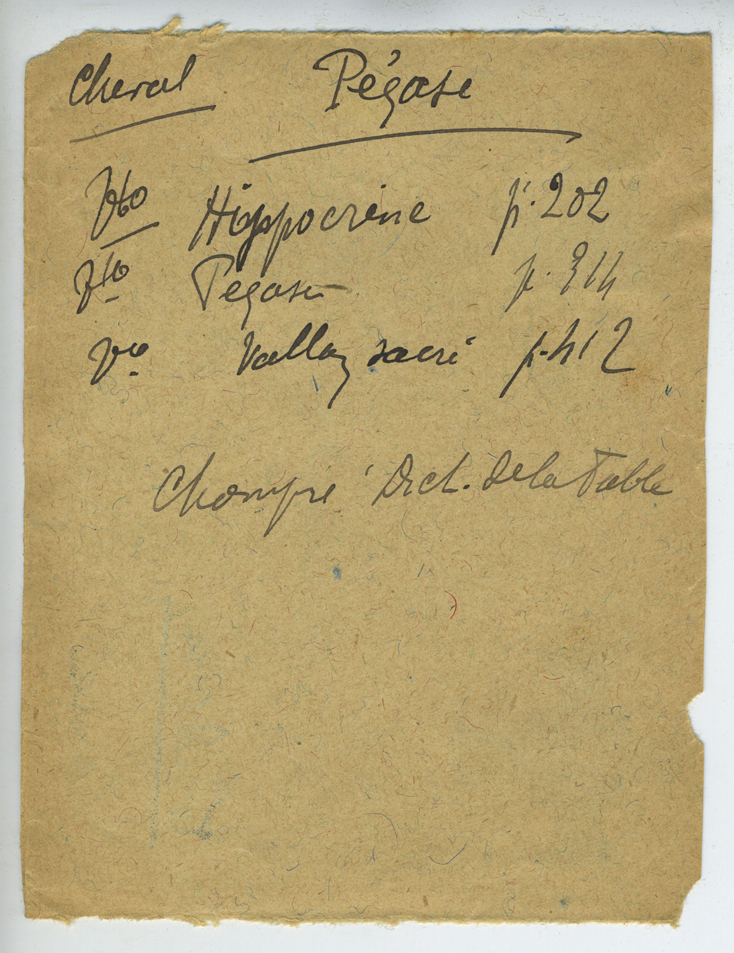 Cheval Pégase
Vto Hippocrène p. 202
Vto Pégase p. 314
Vo Vallon sacré p. 412
Chompré Dict. de la Fable